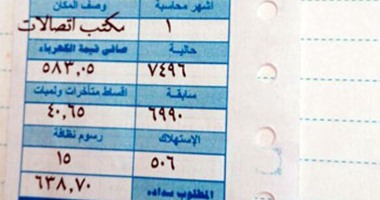 أشهر محاسبة وصف المكان
١ مكتب اتصالات
حالية صافى قيمة الكهرباء
٧٤٩٦ ٥٨٣,٠٥
سابقة اقساط متأخرات ونميات
٦٩٩٠ ٤٠,٦٥
الإستهلاك رسوم نظافة
٥٠٦ ١٥
المطلوب سداده ٦٣٨,٧٠